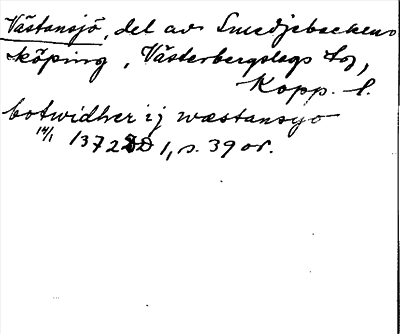 Västansjö, del av Smedjebackens
köping, Västerbergslags tg,
Kopp. l.
botwidher ij wæstansyo
14/1 1372 DD 1, s. 39 or.